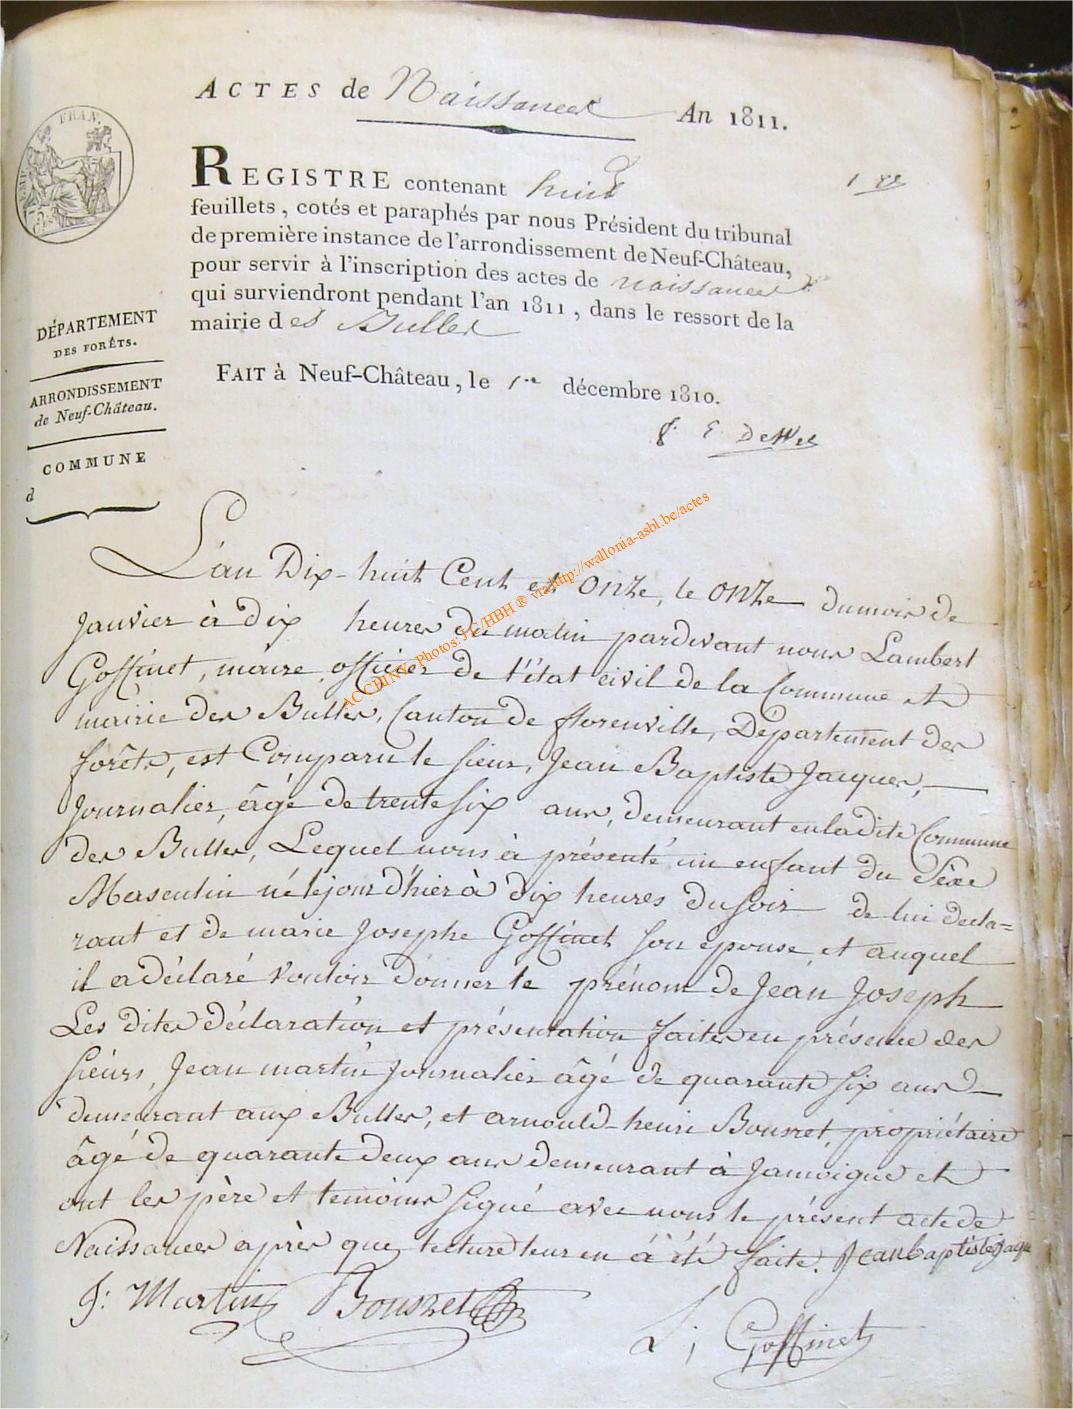 ACTES de Naissances An 1811.
EMP. FRAN.
75 C.
REGISTRE contenant huit
feuillets, cotés et paraphés par nous Président du tribunal
de première instance de l'arrondissement de Neuf-Château,
pour servir à l'inscription des actes de naissances
qui surviendront pendant l'an 1811, dans le ressort de la
mairie des Bulles
FAIT à Neuf-Château, le 1er décembre 1810.
DÉPARTEMENT
DES FORÊTS.
ARRONDISSEMENT
de Neuf-Château.
COMMUNE
d
L'an Dix-huit Cent et onze, le onze du mois de
Janvier à dix heures du matin pardevant nous Lambert
Goffinet, maire, officier de l'état civil de la Commune et
mairie des Bulles, Canton de florenville, Département des
forêts, est Comparu le sieur, Jean Baptiste Jacques,
Journalier, âgé de trente six ans, demeurant en la dite Commune
des Bulles, Lequel nous à présenté un enfant du Sèxe
Masculin né le jour d'hier à dix heures du soir de lui décla=
rant et de marie Josephe Goffinet son épouse, et auquel
il a déclaré vouloir donner le prénom de Jean Joseph
Les dites déclaration et présentation faites en présence des
sieurs, Jean martin Journalier âgé de quarante six ans
demeurant aux Bulles, et arnould-henri Bousret, propriétaire
âgé de quarante deux ans demeurant à Jamoigne et
ont les père et temoins signé avec nous le présent acte de
Naissances après que lecture leur en à été faite. Jean baptiste Jacques
J: Martin Bousret
L; Goffinet
ACCHINY - Photos: J-C/HBH ® via http://wallonia-asbl.be/actes